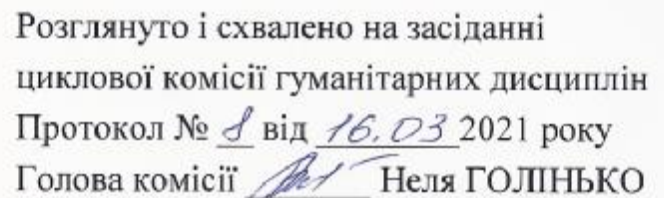 Розглянуто і схвалено на засіданні
циклової комісії гуманітарних дисциплін
Протокол № 8 від 16.03 2021 року
Голова комісії Неля ГОЛІНЬКО